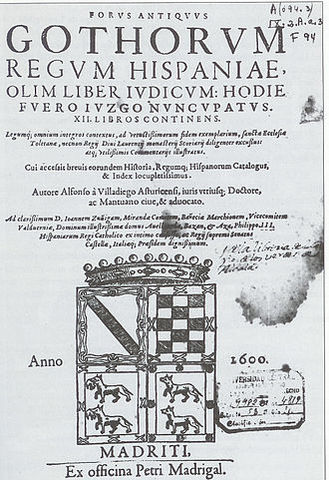 FORUS ANTIQVVS
GOTHORVM
REGVM HISPANIAE,
OLIM LIBER IVDICVM: HODIE
FVERO IVZGO NVNCVPATVS.
XII. LIBROS CONTINENS.
Legumq; omnium integros contextus, ad vetustissimorum fidem exemplarium, sanctæ Ecclesiæ
Toletanæ, necnon Regij Diui Laurentij monasterij Scorialis diligenter excussus:
atq; vtilissimis Commentarijs illustratus.
Cui accessit breuis eorundem Historia, Regumq; Hispanorum Catalogus,
& Index locupletissimus.
Autore Alfonso à Villadiego Asturicensi, iuris vtriusq; Doctore,
ac Mantuano ciue, & aduocato.
Ad clarissimum D. Ioannem Zuñigam, Miranda Comitem, Marchionem, Vicecomitem
Valduerna, Dominum illustrissimæ domus Bazan, & Aza, Philippo III.
Hispaniarum Regi Catholico ex intimo ac Regij supremi Senatus
Castella, Italiaq; Præsidem dignissimum.
Anno 1600.
MADRITI,
Ex officina Petri Madrigal.
A (094.3)
IX. 3. A. a. 3
F 94